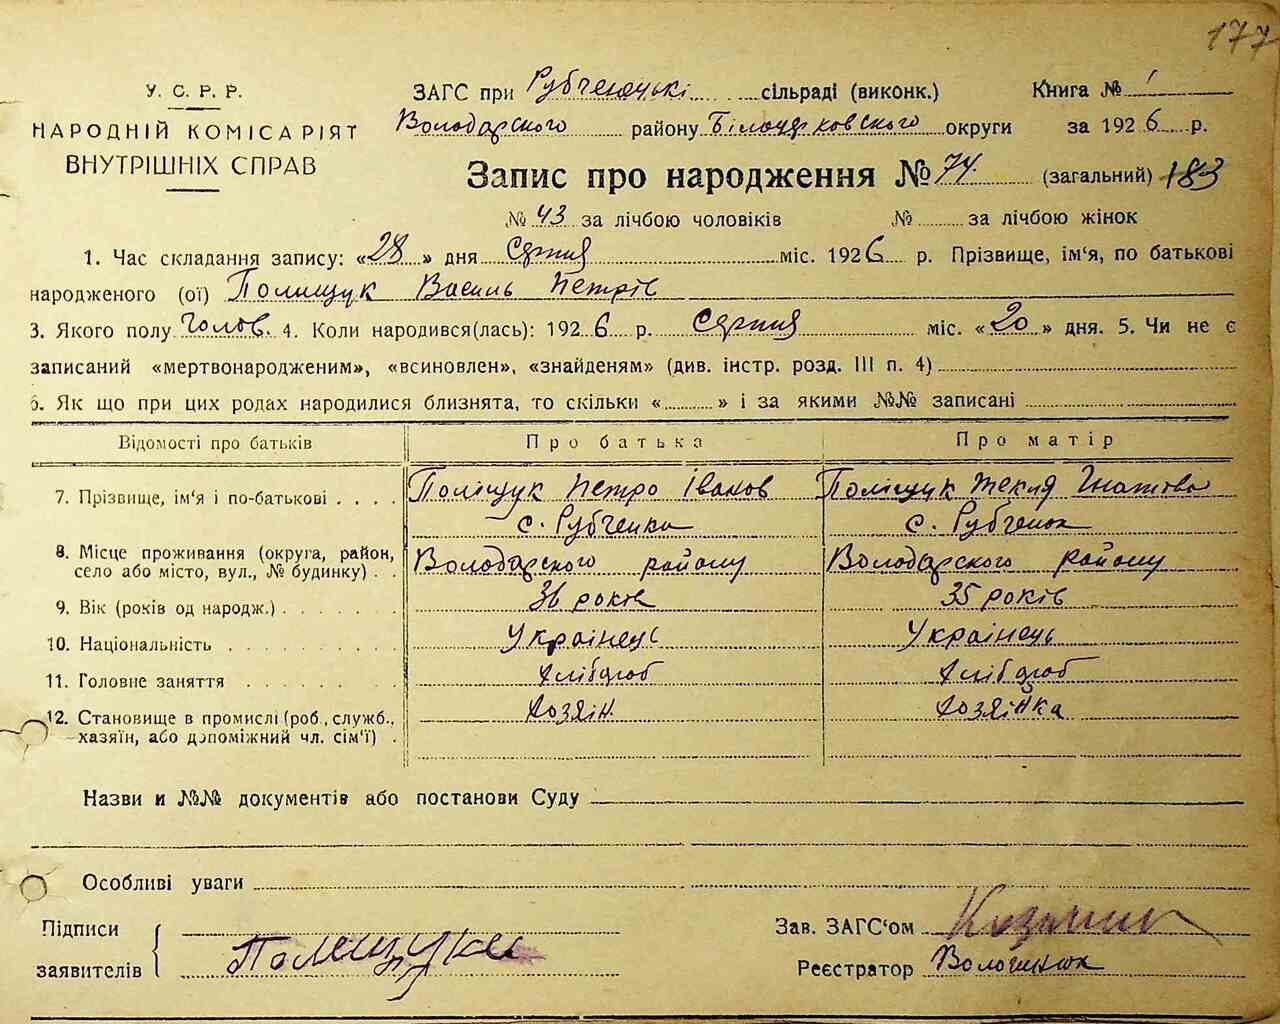 177
У. С. Р. Р.
НАРОДНІЙ КОМІСАРІЯТ
ВНУТРІШНІХ СПРАВ
ЗАГС при Рубченські сільраді (виконк.) Книга № 1
Володарского району Білоцерковского округи за 1926 р.
Запис про народження № 74. (загальний) 183
№ 43 за лічбою чоловіків № за лічбою жінок
1. Час складання запису: «28» дня Серпня міс. 1926 р. Прізвище, ім'я, по батькові
народженого (ої) Полищук Василь Петрів
3. Якого полу Чолов. 4. Коли народився(лась): 1926 р. Серпня міс. «20» дня. 5. Чи не є
записаний «мертвонародженим», «всиновлен», «знайденям» (див. інстр. розд. III п. 4)
6. Як що при цих родах народилися близнята, то скільки « » і за якими №№ записані
Відомості про батьків Про батька Про матір
7. Прізвище, ім'я і по-батькові . . . . Поліщук Петро Іванов Поліщук Текля Гнатова
с. Рубченка с. Рубченок
8. Місце проживання (округа, район, село або місто, вул., № будинку) . . Володарского району Володарского району
9. Вік (років од народж.) . . . . . . . 36 років 35 років
10. Національність . . . . . . . . . . Українець Українець
11. Головне заняття . . . . . . . . Хлібороб Хлібороб
12. Становище в промислі (роб., служб., хазяїн, або допоміжний чл. сім'ї) . Хозяін Хозяйка
Назви и №№ документів або постанови Суду
Особливі уваги
Підписи
заявителів Полещука
Зав. ЗАГС'ом
Реєстратор